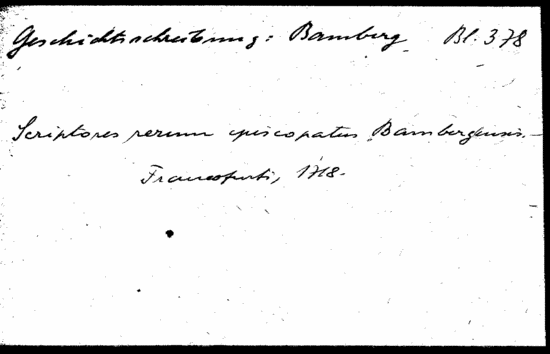 Geschichtsschreibung: Bamberg Bl. 378
Scriptores rerum episcopatus Bambergensis.—
Francofurti, 1718.